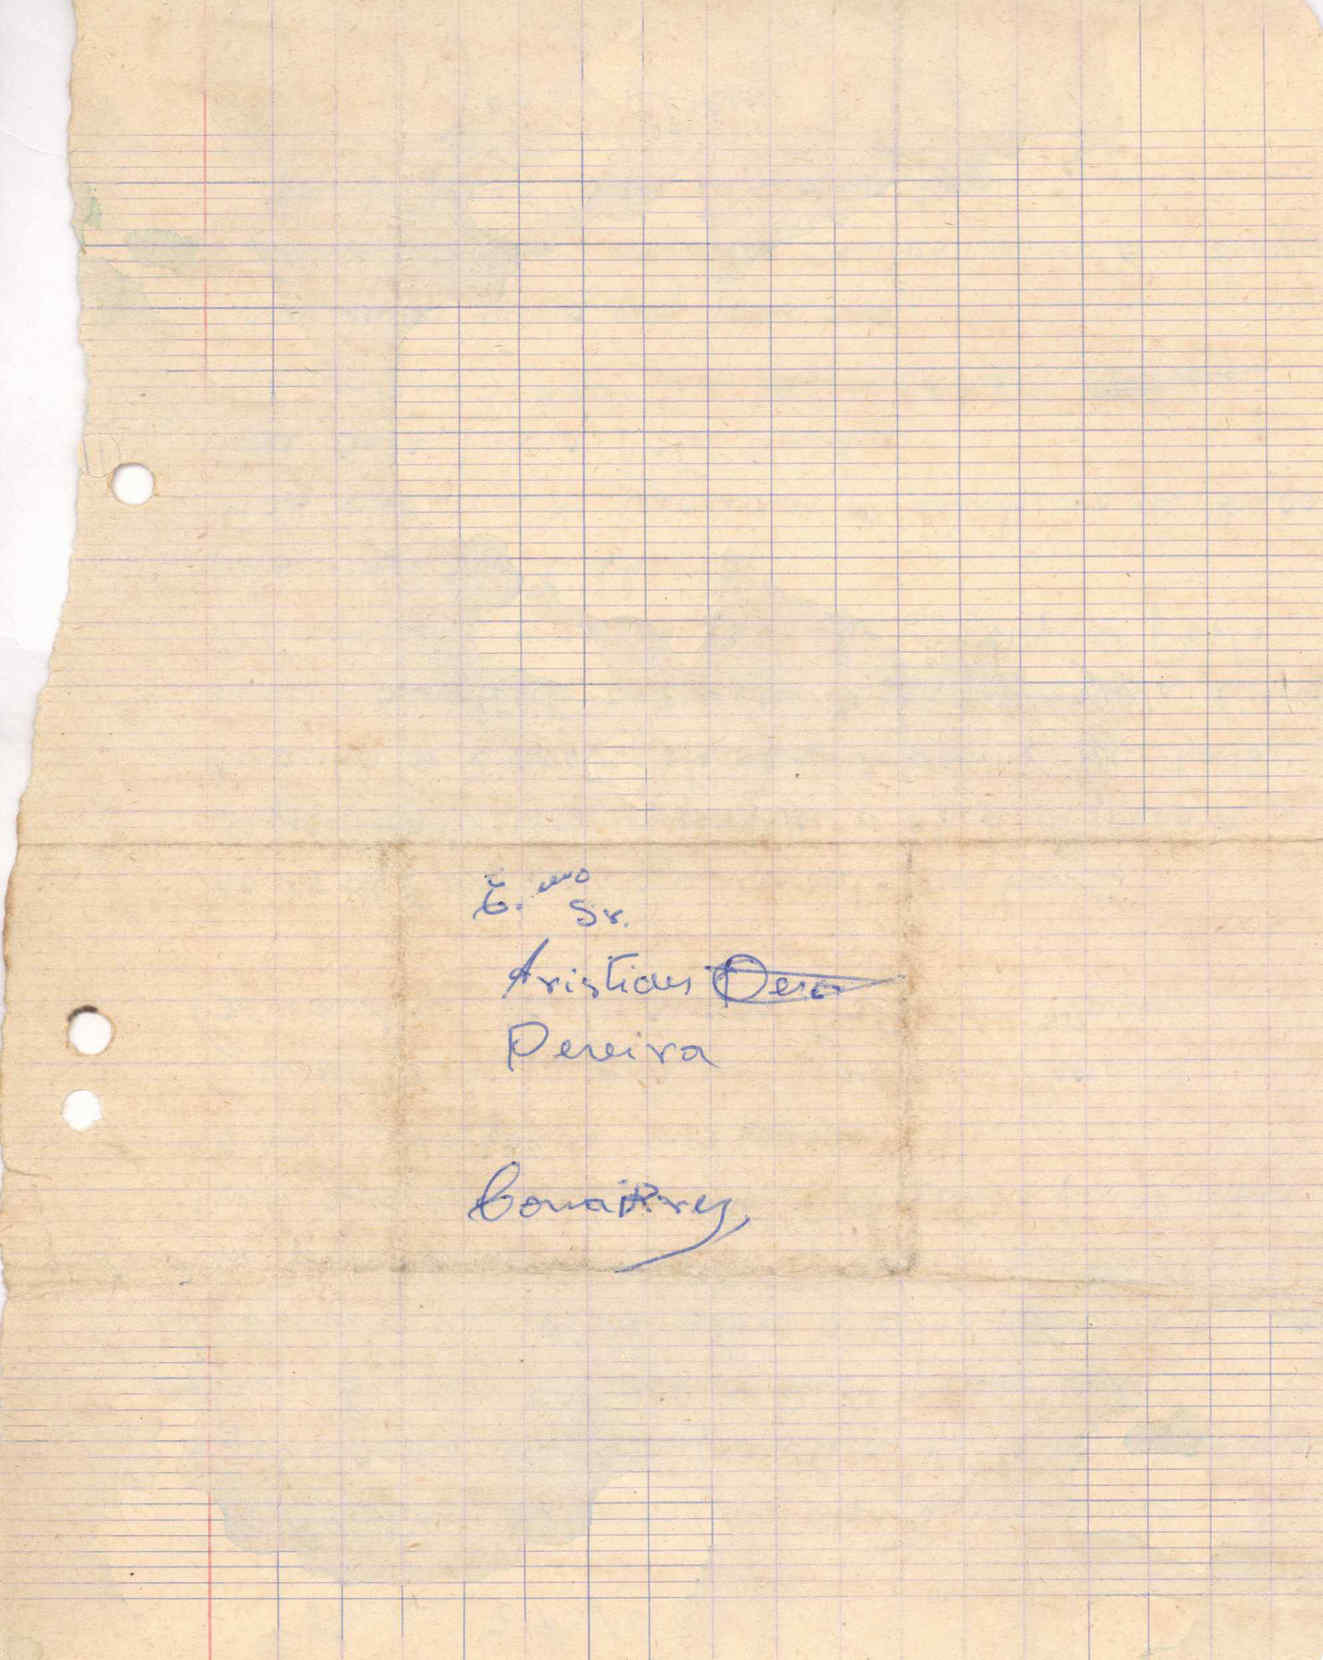 E.mo Sr.
Aristides Pere
Pereira
Conakry